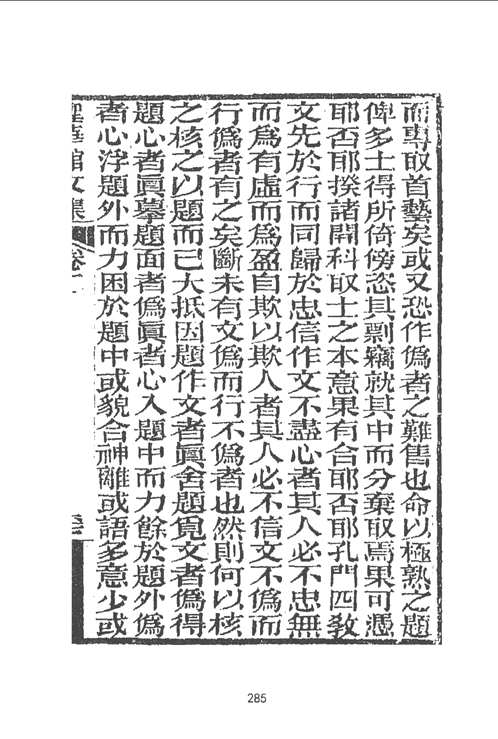 而專取首藝矣或又恐作僞者之難售也命以極熟之題
俾多士得所倚傍恣其剽竊就其中而分棄取焉果可憑
耶否耶揆諸開科取士之本意果有合耶否耶孔門四教
文先於行而同歸於忠信作文不盡心者其人必不忠無
而爲有虛而爲盈自欺以欺人者其人必不信文不僞而
行僞者有之矣斷未有文僞而行不僞者也然則何以核
之核之以題而已大抵因題作文者眞舍題覓文者僞得
題心者眞摹題面者僞眞者心入題中而力餘於題外僞
者心浮題外而力困於題中或貌合神離或語多意少或
華館文集 卷二
285